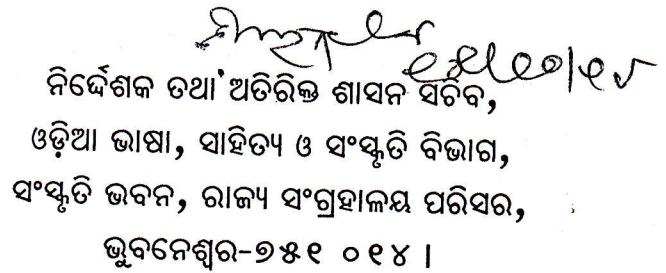 ନିର୍ଦ୍ଦେଶକ ତଥା ଅତିରିକ୍ତ ଶାସନ ସଚିବ,
ଓଡ଼ିଆ ଭାଷା, ସାହିତ୍ୟ ଓ ସଂସ୍କୃତି ବିଭାଗ,
ସଂସ୍କୃତି ଭବନ, ରାଜ୍ୟ ସଂଗ୍ରହାଳୟ ପରିସର,
ଭୁବନେଶ୍ୱର-୭୫୧ ୦୧୪ ।